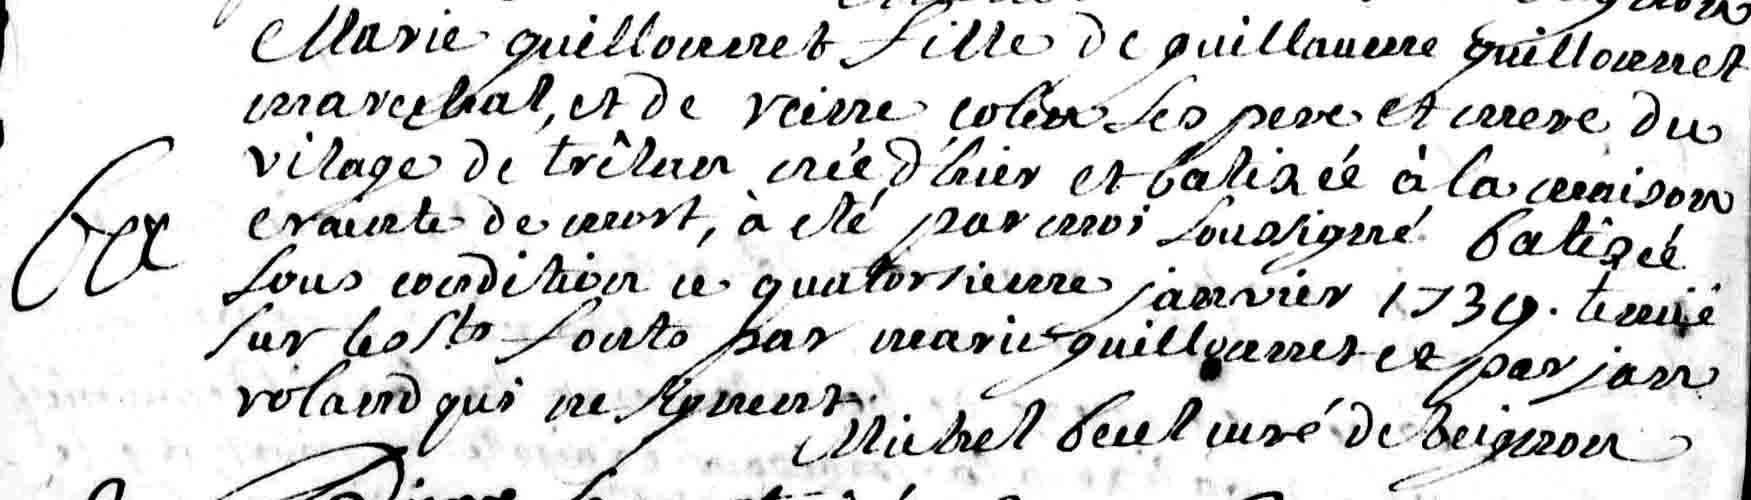 Marie guillouret fille de guillaume guillouret
marechal, et de reine colin ses pere et mere du
vilage de trêlan née d'hier et batisée à la maison
crainte de mort, à eté par moi soussigné batisée
bx
sous condition ce quatorsieme janvier 1739. tenuë
sur les sts fonts par marie guillouret et par jan
roland qui ne signent.
Michel beul curé de beignon